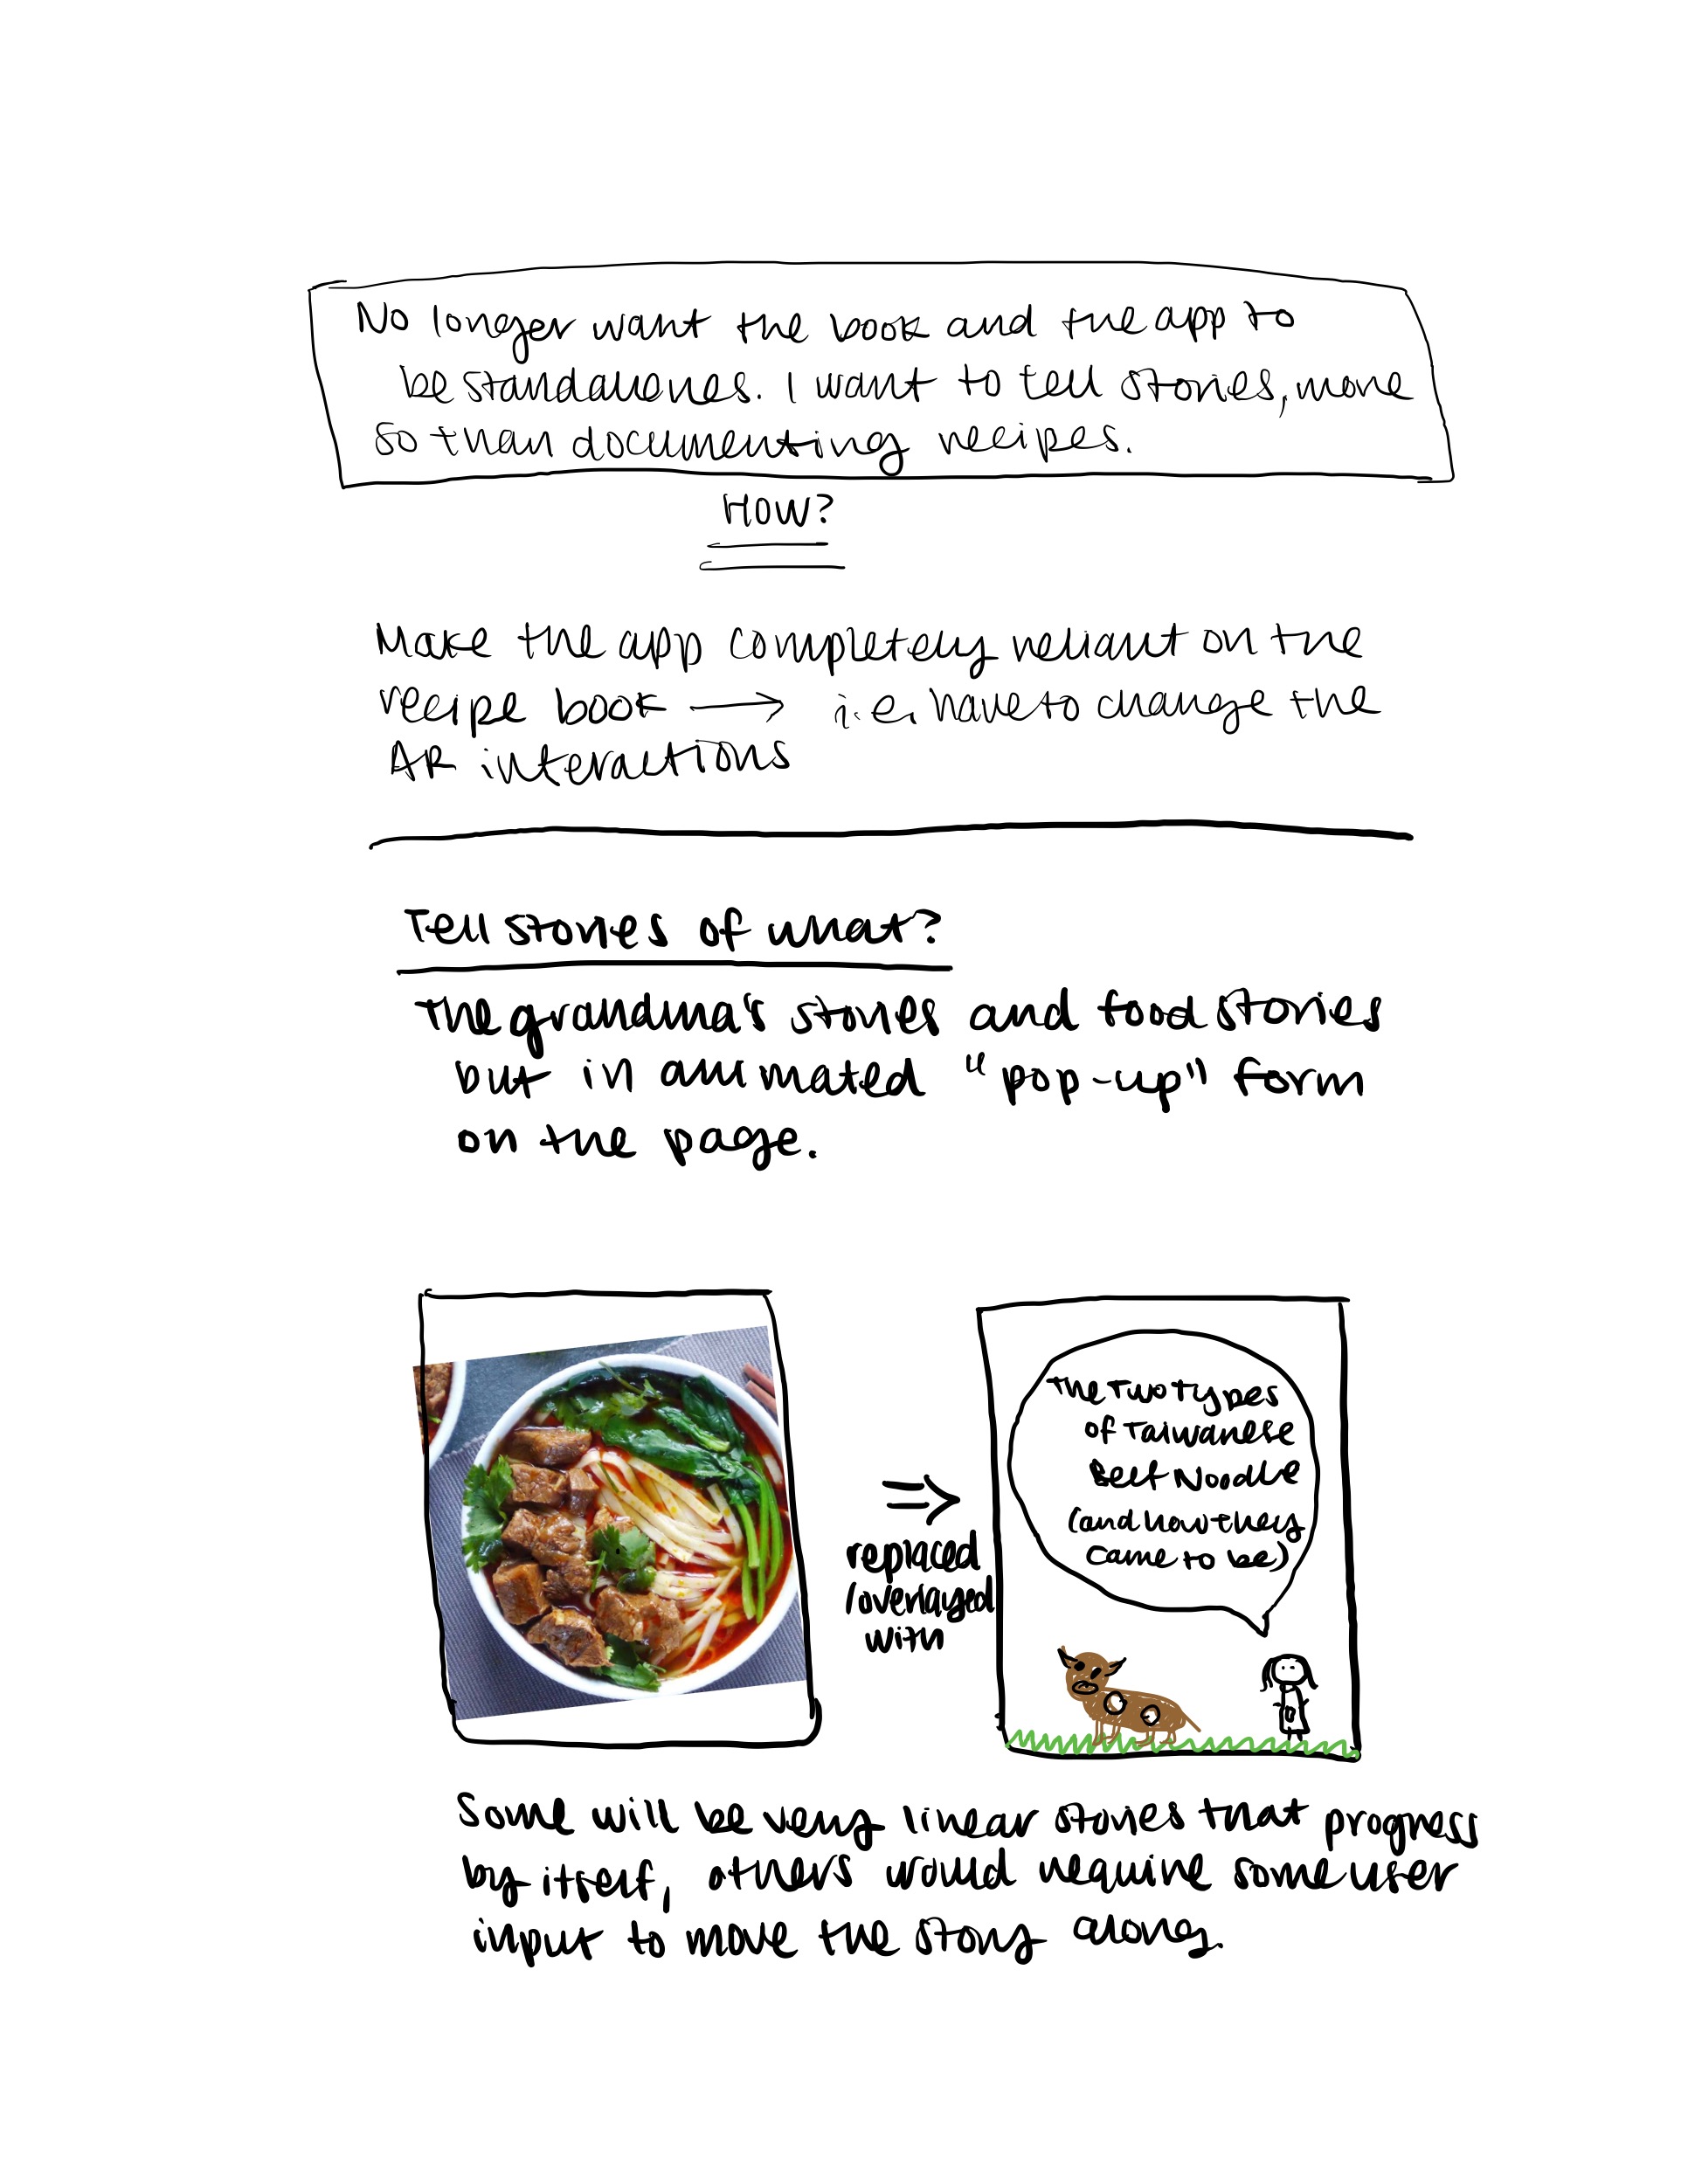 No longer want the book and the app to
be standalones. I want to tell stories, more
so than documenting recipes.
HOW?
Make the app completely reliant on the
recipe book → i.e. have to change the
AR interactions
Tell stories of what?
The grandma's stories and food stories
but in animated "pop-up" form
on the page.
⇒
replaced
/overlayed
with
The Two Types
of Taiwanese
Beef Noodle
(and how they
came to be)
Some will be very linear stories that progress
by itself, others would require some user
input to move the story along.